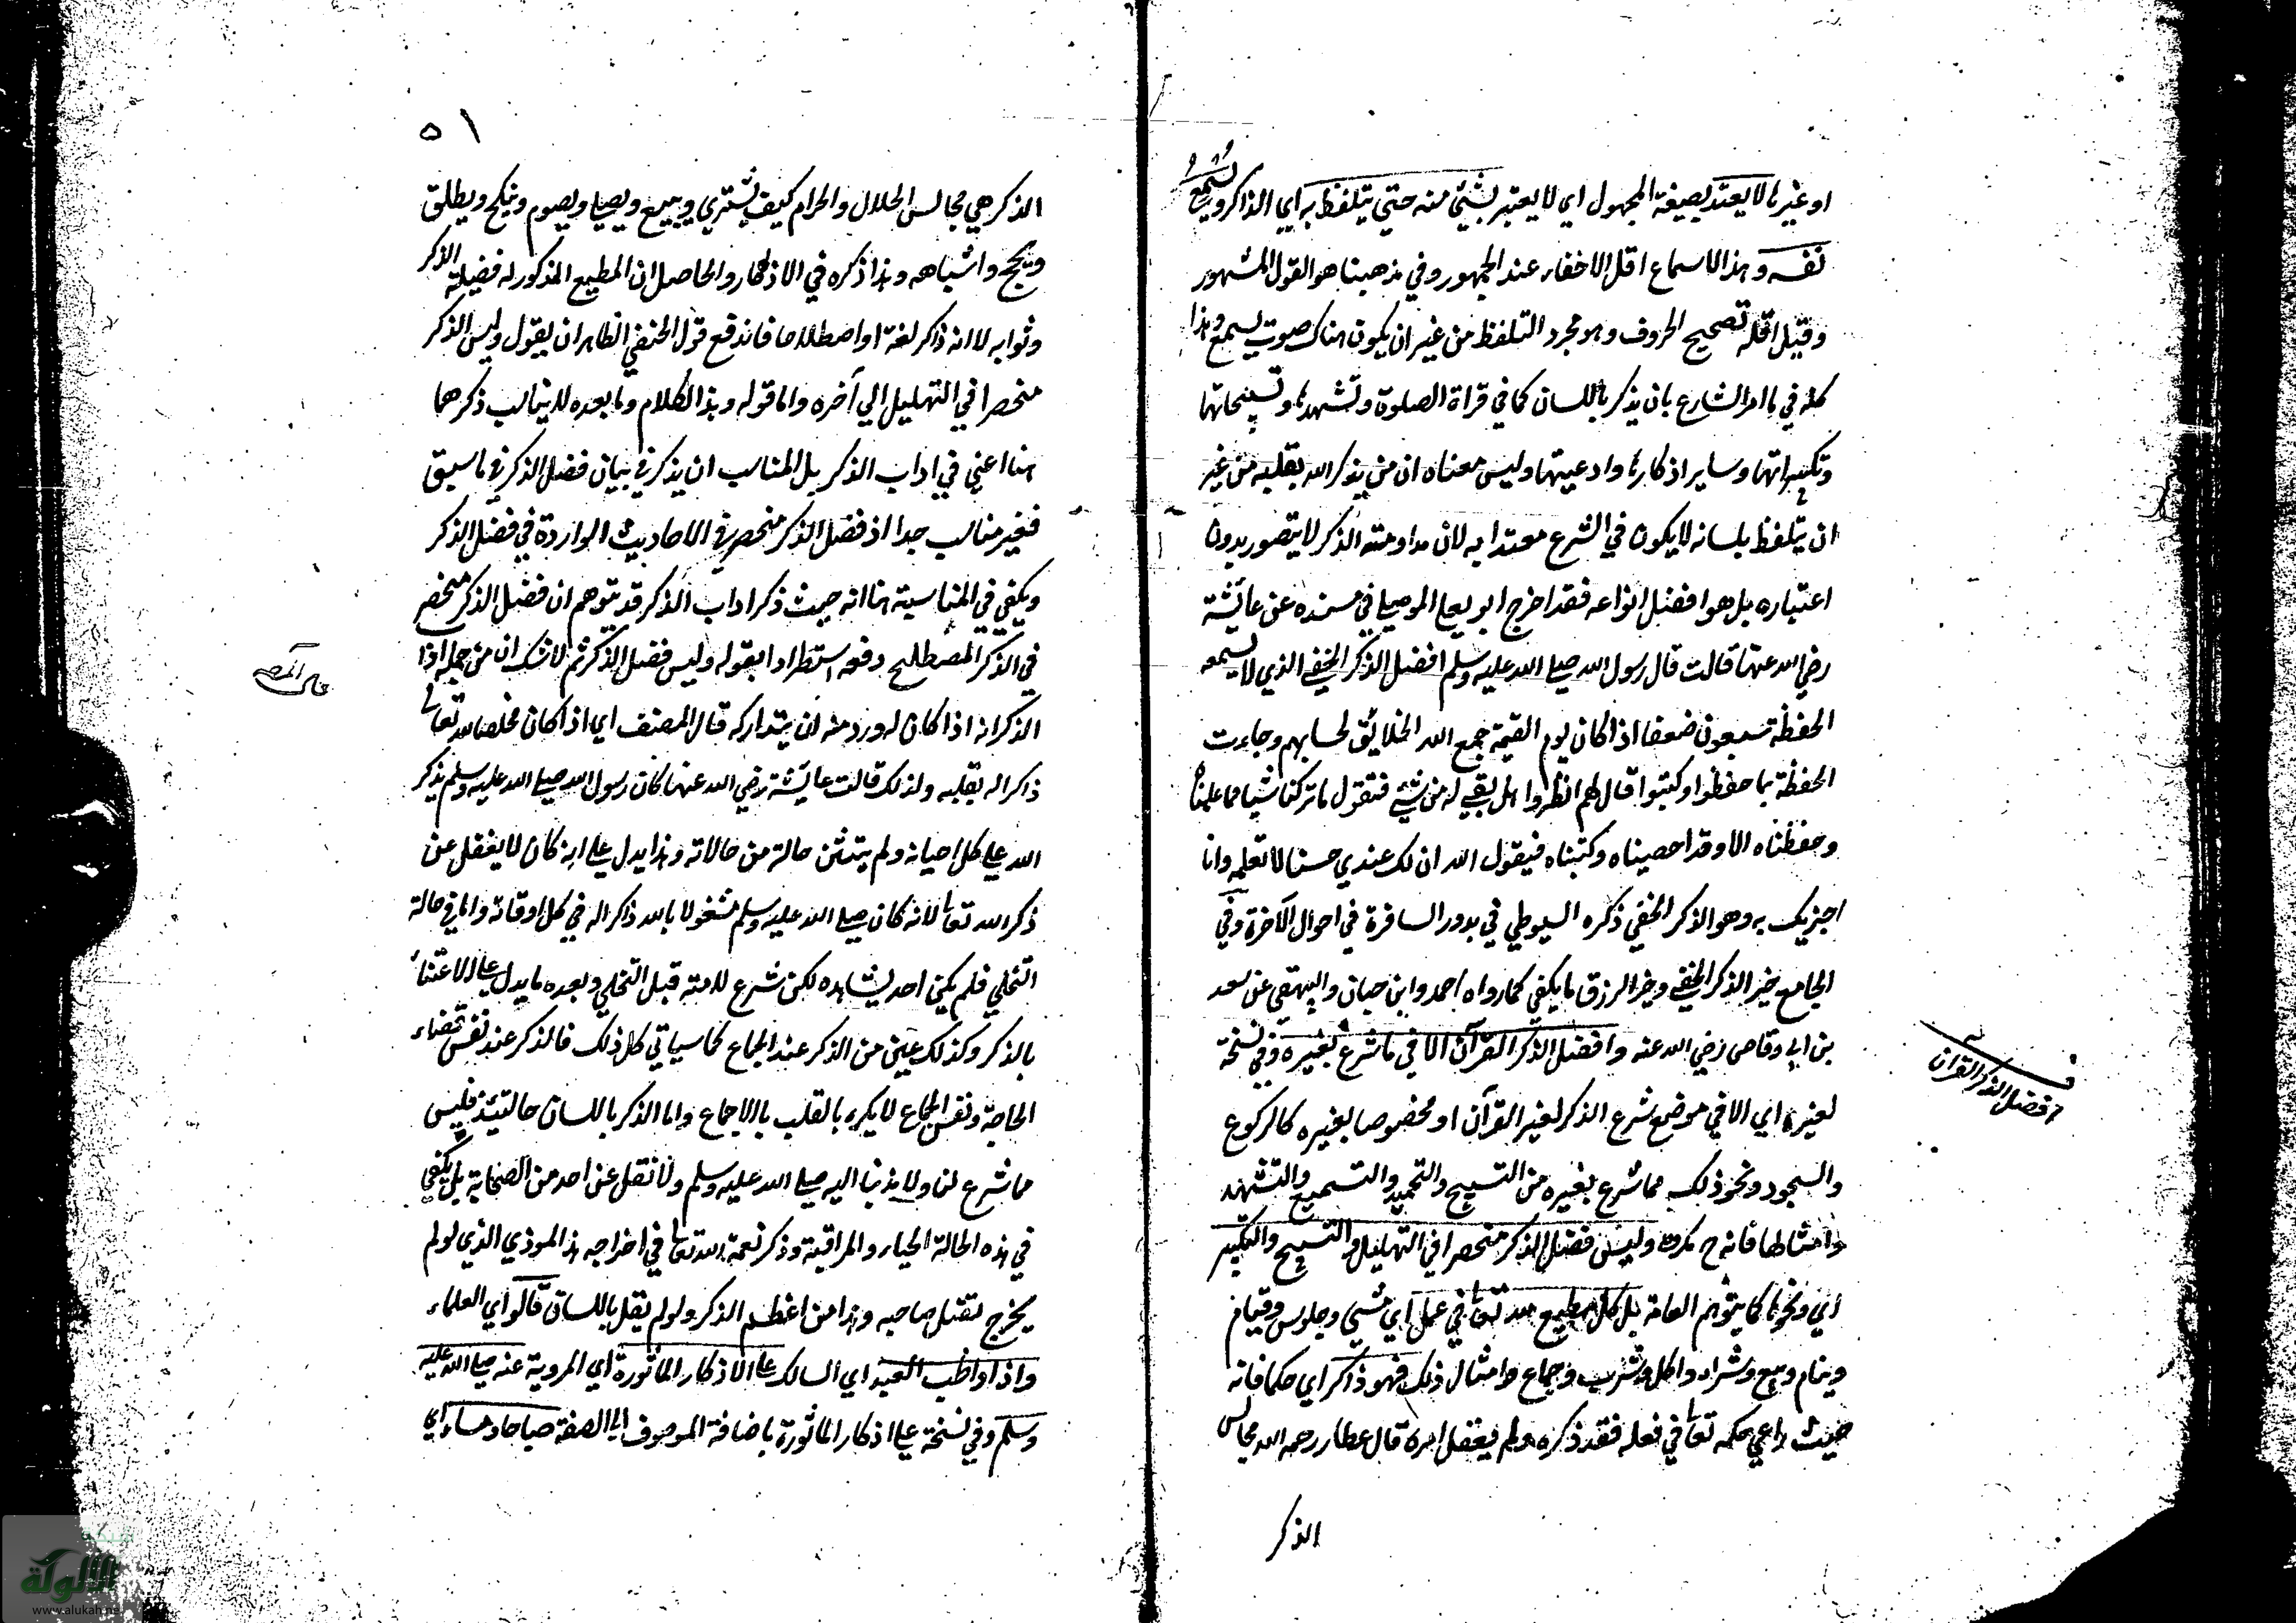 او غيرها لا يعتد بصيغة المجهول اي لا يعتبر بشئ منه حتي يتلفظ به اي الذاكر ويسمع
نفسه وهذا الاسماع اقل الاخفاء عند الجمهور وفي مذهبنا هو القول المشهور
وقيل اقله تصحيح الحروف وهو مجرد التلفظ من غير ان يكون هناك صوت يسمع وهذا
كله في ما امر الشارع بان يذكر باللسان كما في قراة الصلوة وتشهدها وتسبيحاتها
وتكبيراتها وساير اذكارها وادعيتها وليس معناه ان من يذكر الله بقلبه من غير
ان يتلفظ بلسانه لا يكون في الشرع معتدا به لان مداومته الذكر لا يتصور بدون
اعتباره بل هو افضل انواعه فقد اخرج ابو يعلي الموصلي في مسنده عن عائشة
رضي الله عنها قالت قال رسول الله صلي الله عليه وسلم افضل الذكر الخفي الذي لا يسمعه
الحفظة سبعون ضعفا اذا كان يوم القيمة جمع الله الخلايق لحسابهم وجاءت
الحفظة بما حفظوا وكتبوا قال لهم انظروا هل بقي له من شئ فتقول ما تركنا شيا مما علمناه
وحفظناه الا وقد احصيناه وكتبناه فيقول الله ان لك عندي حسنا لا تعلمه وانا
اجزيك به وهو الذكر الخفي ذكره السيوطي في بدور السافرة في احوال الآخرة وفي
الجامع خير الذكر الخفي وخير الرزق ما يكفي كما رواه احمد وابن حبان والبيهقي عن سعد
بن ابي وقاص رضي الله عنه وافضل الذكر القرآن الا في ما شرع بغيره وفي نسخة
لغيره اي الا في موضع شرع الذكر لغير القرآن او مخصوصا بغيره كالركوع
والسجود ونحو ذلك مما شرع بغيره من التسبيح والتحميد والتسميع والتشهد
وامثالها فانه ح مكروه وليس فضل الذكر منحصرا في التهليل والتسبيح والتكبير
اي ونحوها كما يتوهم العامة بل كل مطيع لله تعالي في عمل اي مشي وجلوس وقيام
وينام وبيع وشراء واكل وشرب وجماع وامثال ذلك فهو ذاكر اي حكما فانه
حيث راعي حكمه تعالي في فعله فقد ذكره ولم يغفل امره قال عطار رحمه الله مجالس
الذكر
افضل الذكر القرآن
٥١
الذكر هي مجالس الحلال والحرام كيف يشتري ويبيع ويصلي ويصوم وينكح ويطلق
ويحج واشباهه وهذا ذكره في الاذكار والحاصل ان المطيع المذكور له فضيلة الذكر
وثوابه لا انه ذاكر لغة او اصطلاحا فاندفع قول الحنفي الظاهر ان يقول وليس الذكر
منحصرا في التهليل الي آخره واما قوله وهذا الكلام وما بعده لا يناسب ذكرهما
هنا اعني في اداب الذكر بل المناسب ان يذكر في بيان فضل الذكر في ما سبق
فغير مناسب جدا اذ فضل الذكر منحصر في الاحاديث الواردة في فضل الذكر
ويكفي في المناسبة هنا انه حيث ذكر اداب الذكر قد يتوهم ان فضل الذكر منحصر
في الذكر المصطلح دفعه استطرادا بقوله وليس فضل الذكر ثم لا شك ان من جملة اداب
الذكر انه اذا كان له ورد منه ان يتداركه قال المصنف اي اذا كان مخلصا لله تعالي
ذاكرا له بقلبه ولذلك قالت عايشة رضي الله عنها كان رسول الله صلي الله عليه وسلم يذكر
الله علي كل احيانه ولم يستثن حالة من حالاته وهذا يدل علي انه كان لا يغفل عن
ذكر الله تعالي لانه كان صلي الله عليه وسلم مشغولا بالله ذاكرا له في كل اوقاته واما في حالة
التخلي فلم يكن احد يشاهده لكن شرع لامته قبل التخلي وبعده ما يدل علي الاعتناء
بالذكر وكذلك عين من الذكر عند الجماع كما سياتي كل ذلك فالذكر عند نفس قضاء
الحاجة ونفس الجماع لا يكره بالقلب بالاجماع واما الذكر باللسان حالتئذ فليس
مما شرع لنا ولا ندبنا اليه صلي الله عليه وسلم ولا نقل عن احد من الصحابة بل يكفي
في هذه الحالة الحياء والمراقبة وذكر نعمة الله تعالي في اخراجه هذا الموذي الذي لو لم
يخرج لقتل صاحبه وهذا من اعظم الذكر ولو لم يقل باللسان قالوا اي العلماء
واذا واظب العبد اي السالك علي الاذكار الماثورة اي المروية عنه صلي الله عليه
وسلم وفي نسخة علي اذكار الماثورة باضافة الموصوف الي الصفة صباحا ومساء اي